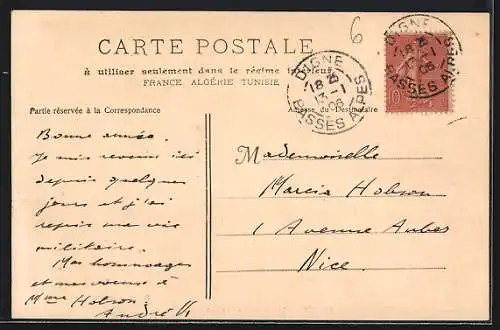 6
CARTE POSTALE
à utiliser seulement dans le régime intérieur
FRANCE ALGÉRIE TUNISIE
DIGNE
18
13-1
06
BASSES ALPES
DIGNE
18
13-1
06
BASSES ALPES
10
Partie réservée à la Correspondance
Adresse du Destinataire
Bonne année.
Je suis revenu ici
depuis quelques
jours et j'ai
repris ma vie
militaire.
Mes hommages
et mes voeux à
Mme Hobson.
André
Mademoiselle
Marcia Hobson
1 Avenue Auber
Nice.